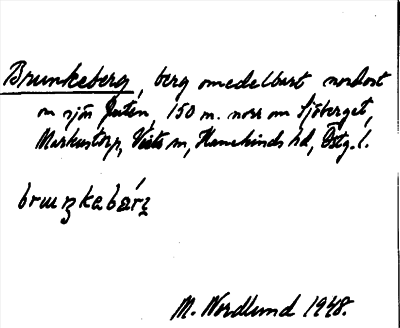 Brunkeberg, berg omedelbart nordost
om sjön Juten, 150 m. norr om Sjöberget,
Markustorp, Västra m, Hanekinds hd, Östg. l.
bruŋkabärʒ
M. Nordlund 1948.